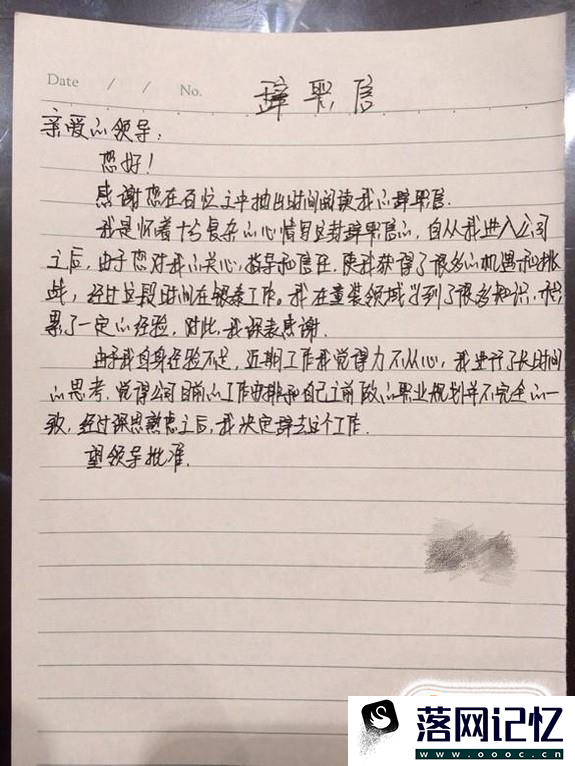 Date / / No.
辞职信
亲爱的领导:
您好!
感谢您在百忙之中抽出时间阅读我的辞职信.
我是怀着十分复杂的心情写这封辞职信的,自从我进入公司
之后,由于您对我的关心,指导和信任,使我获得了很多的机遇和挑
战,经过这段时间在银泰工作。我在童装领域学到了很多知识,积
累了一定的经验,对此,我深表感谢.
由于我自身经验不足,近期工作我觉得力不从心,我进行了长时间
的思考,觉得公司目前的工作安排和自己之前做的职业规划并不完全的一
致,经过深思熟虑之后,我决定辞去这个工作.
望领导批准.
落网记忆
www.oooc.cn